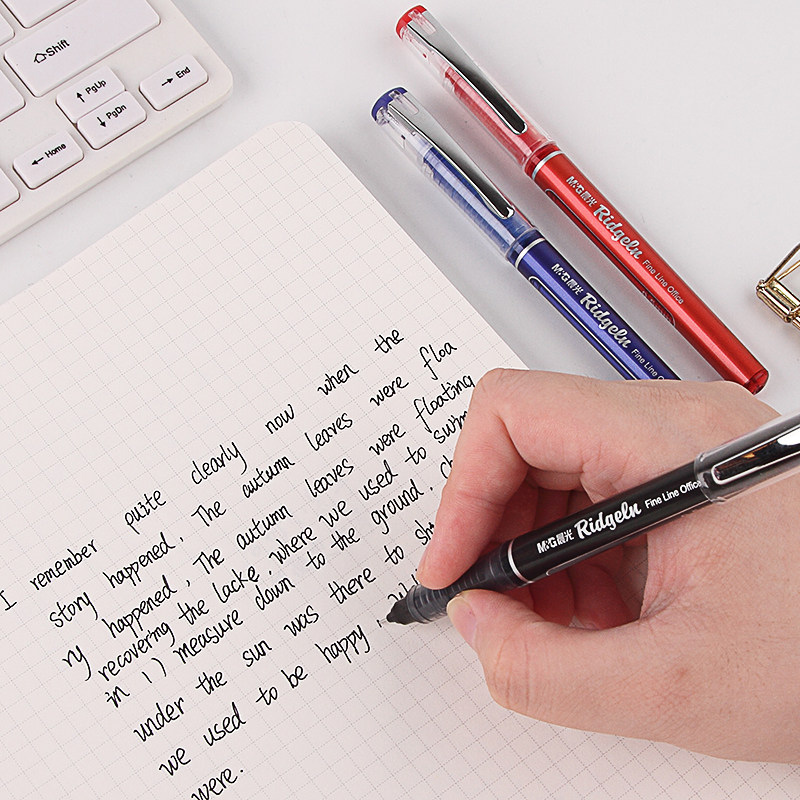 Shift
PgUp
PgDn
End
Home
M&G晨光 Ridgeln Fine Line Office
M&G晨光 Ridgeln Fine Line O
M&G晨光 Ridgeln Fine Line Office
I remember puite clearly now when the
story happened. The autumn leaves were floa
ry happened, The autumn leaves were floating
recovering the lacke, where we used to swim
in 1) measure down to the ground.
under the sun was there to
we used to be happy.
were.